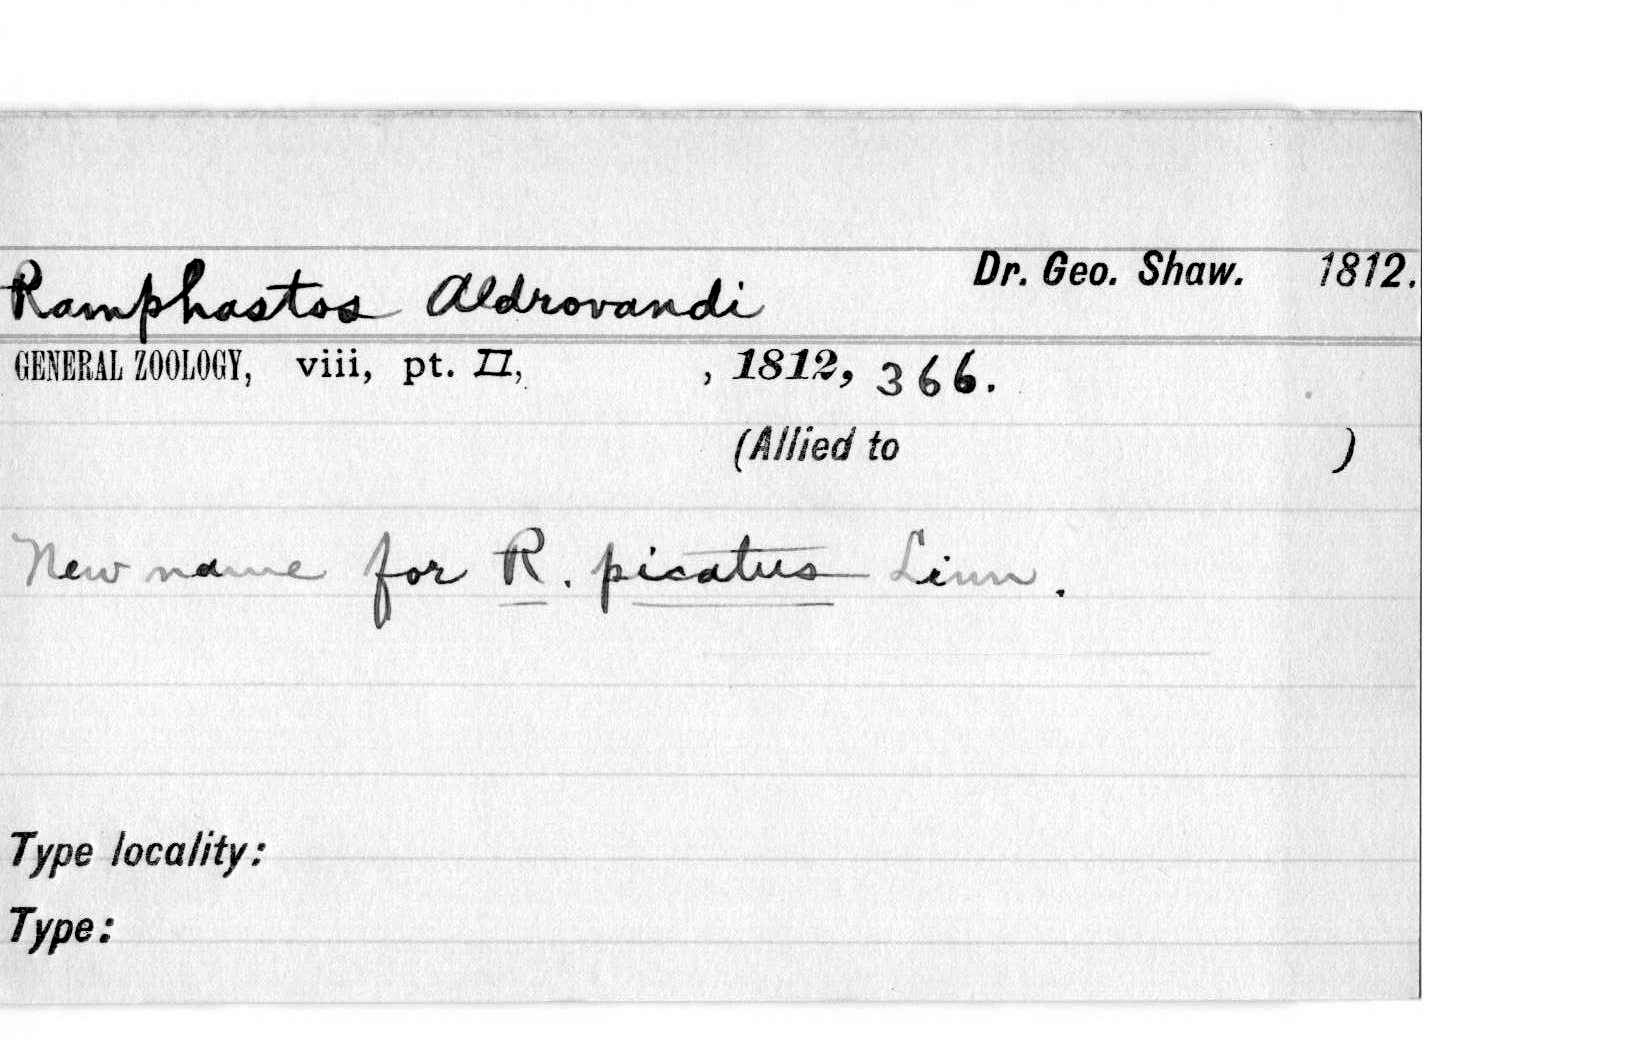 Ramphastos Aldrovandi Dr. Geo. Shaw. 1812.
GENERAL ZOOLOGY, viii, pt. II, , 1812, 366.
(Allied to )
New name for R. picatus Linn.
Type locality:
Type: